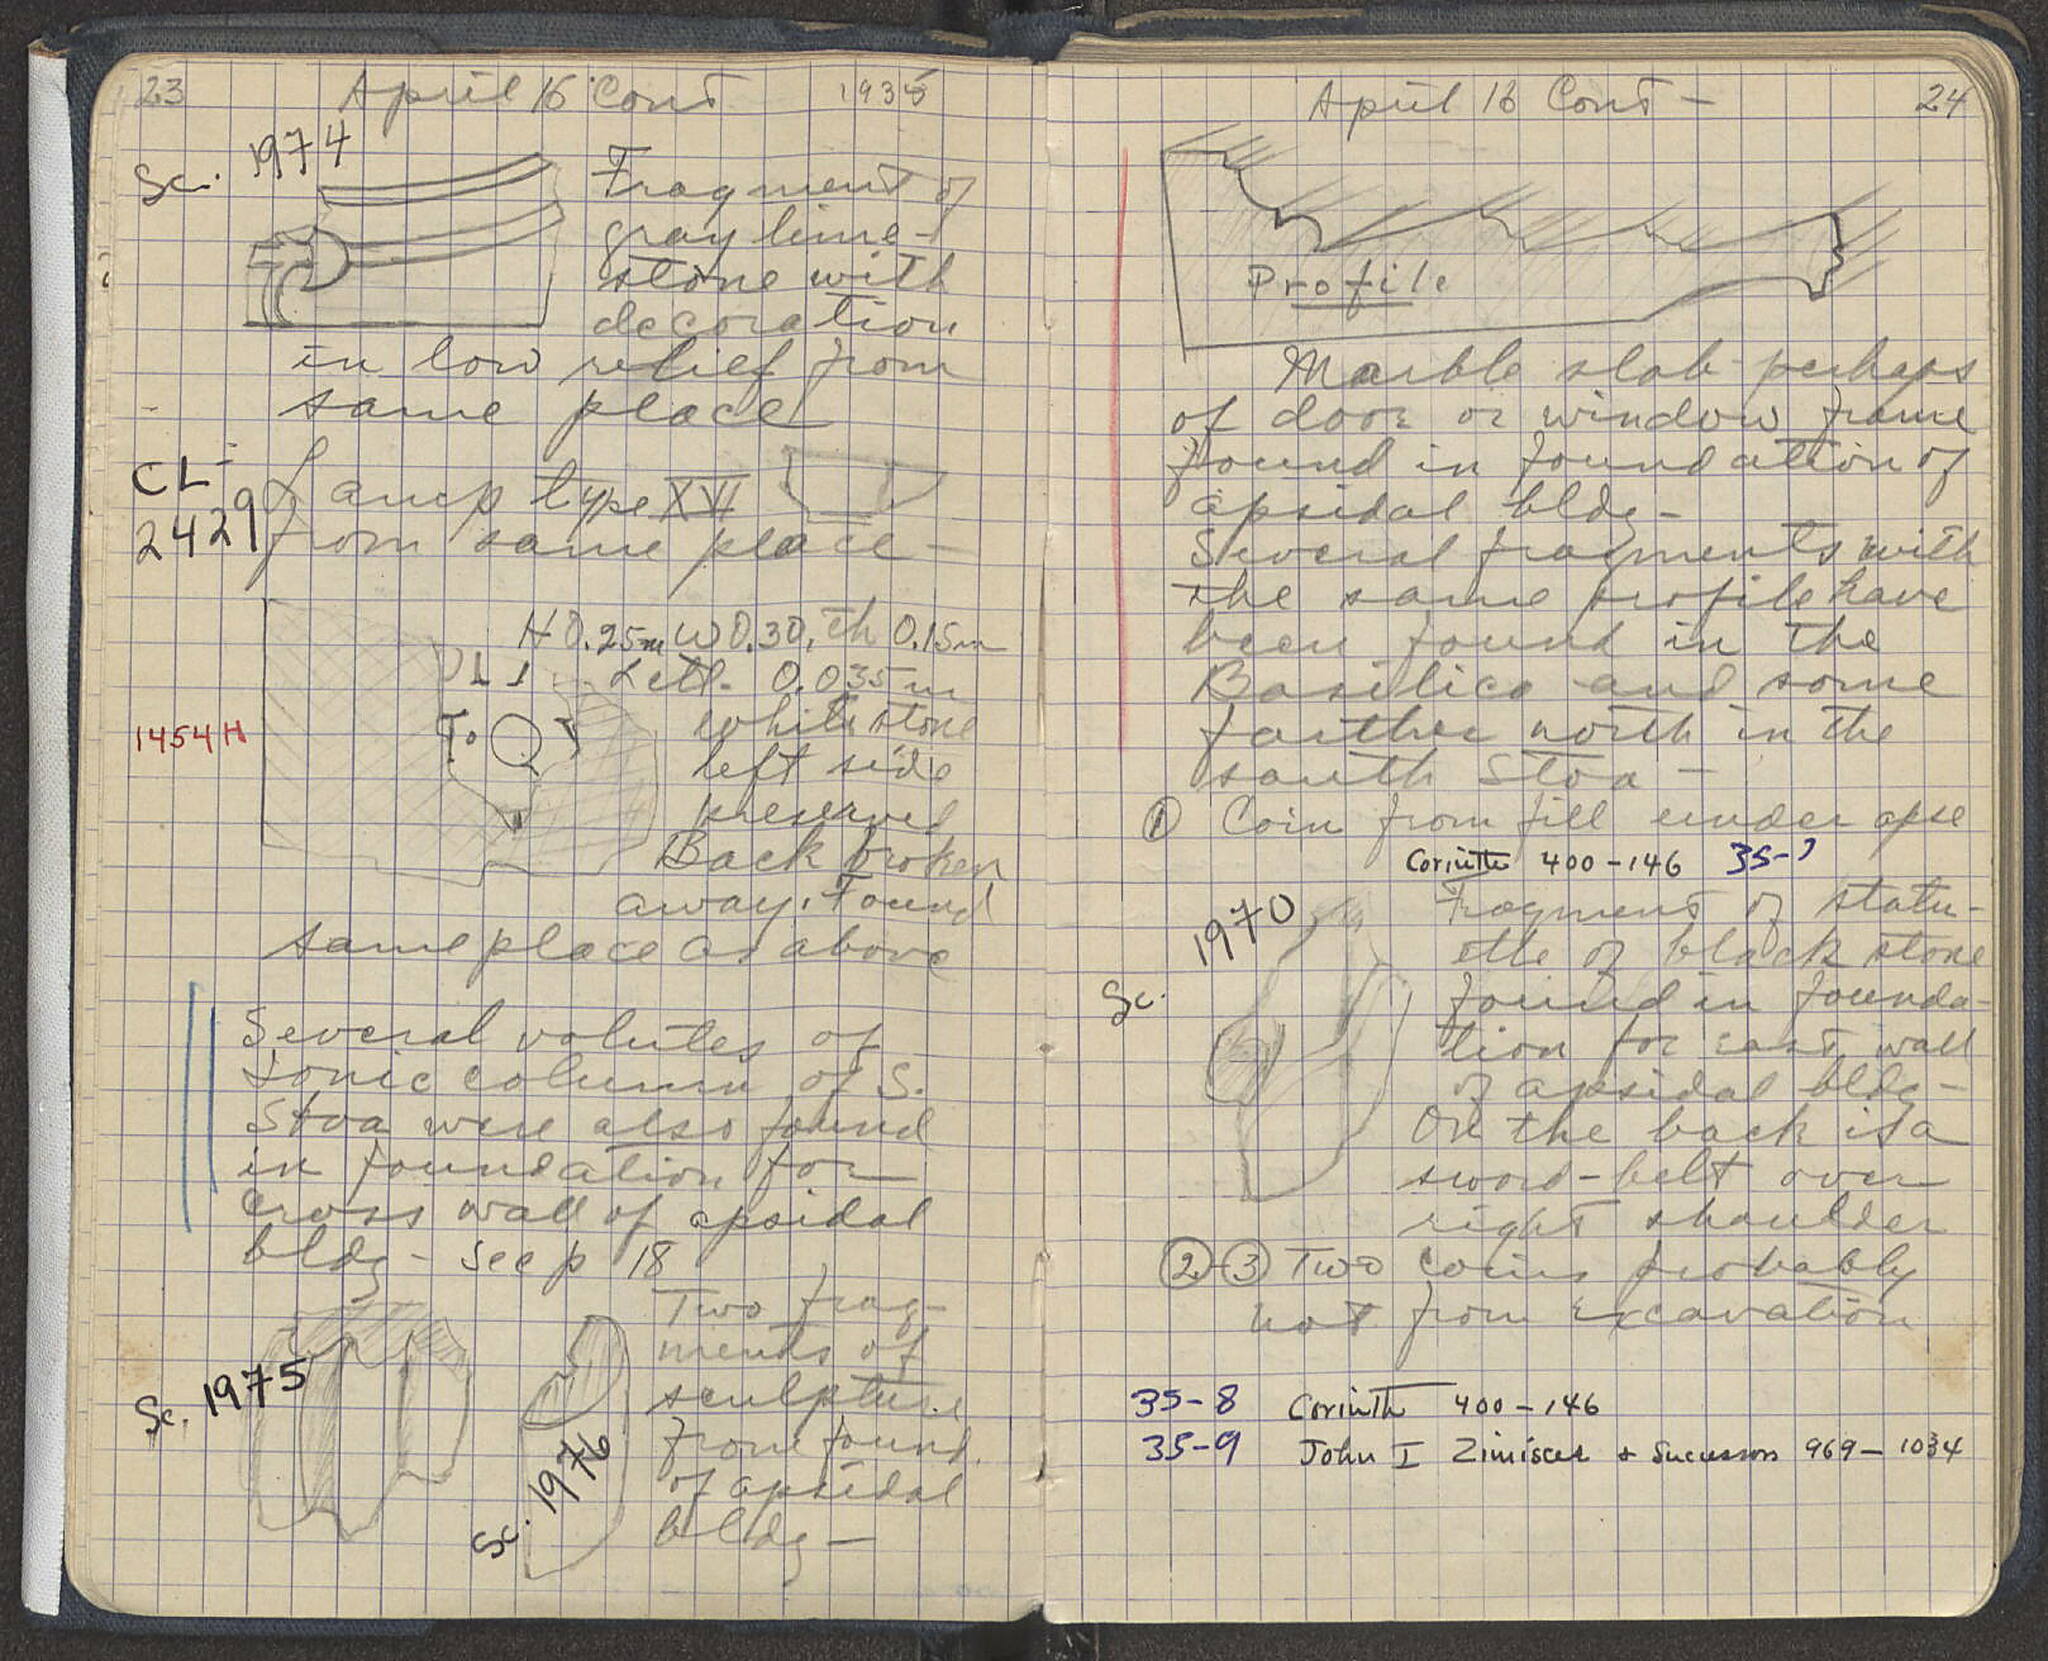 23 April 16 Cont 1935
Sc. 1974
Fragment of
gray lime-
stone with
decoration
in low relief from
same place
CL-
2429
Lamp type XVI
from same place -
H 0.25m W 0.30, Th 0.15m
Lett. 0.035m
To Q
1454 H
white stone
left side
preserved
Back broken
away. Found
same place as above
Several volutes of
Ionic column of S.
Stoa were also found
in foundation for
cross wall of apsidal
bldg - see p 18
Two frag-
ments of
sculpture
from found.
of apsidal
bldg -
Sc. 1975
Sc. 1976
April 16 Cont - 24
Profile
Marble slab perhaps
of door or window frame
found in foundation of
apsidal bldg -
Several fragments with
the same profile have
been found in the
Basilica and some
farther north in the
south Stoa -
① Coin from fill under apse
Corinth 400-146 35-
Sc. 1970
Fragment of statu-
ette of black stone
found in founda-
tion for east wall
of apsidal bldg -
On the back is a
sword-belt over
right shoulder
②-③ Two coins probably
not from excavation
35-8 Corinth 400-146
35-9 John I Zimisces + Successors 969-1034